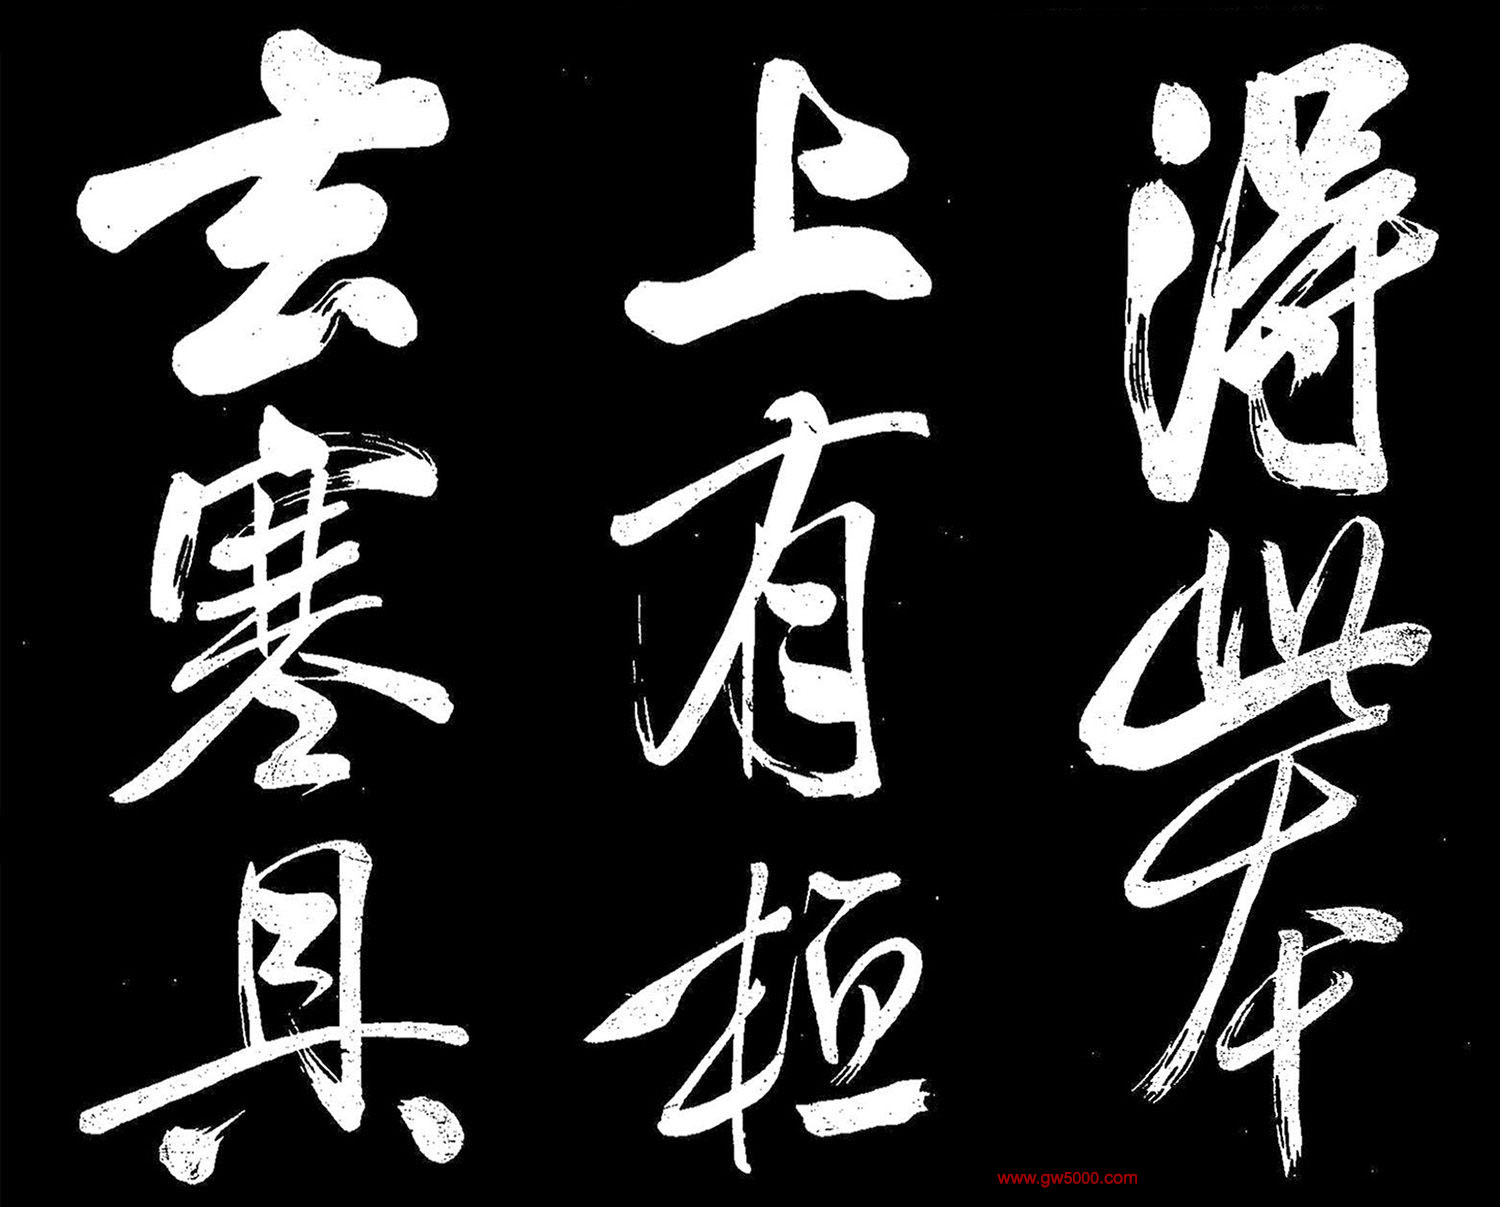 得此本
上有桓
玄寒具
www.gw5000.com